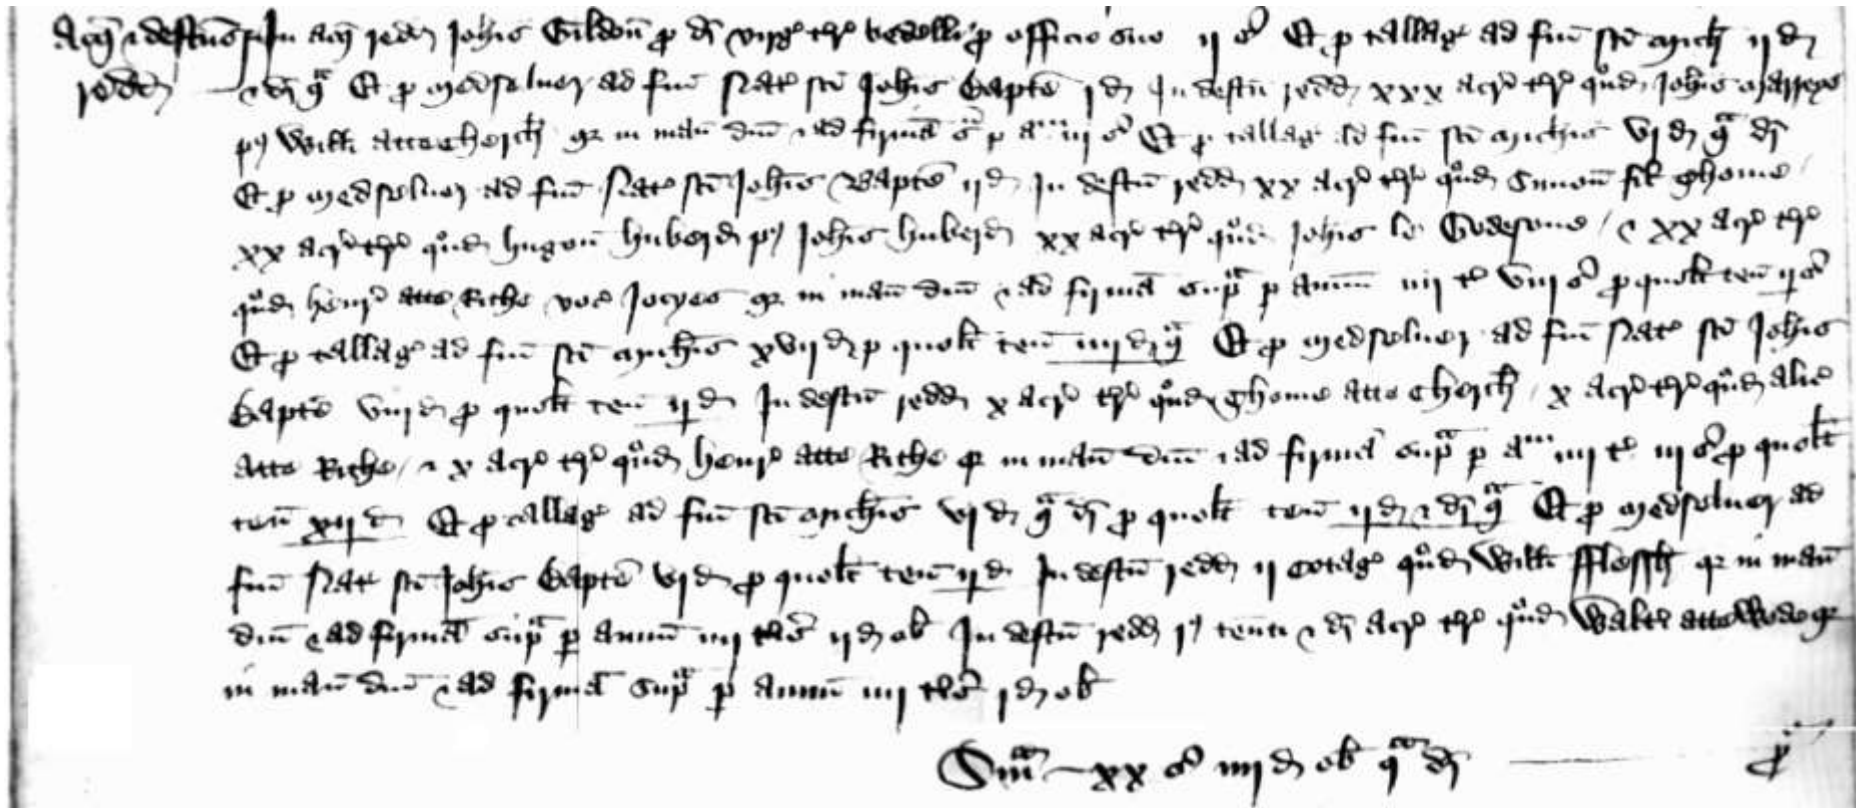 Acq' & defectus In acq' redd' Joh'is Gildon' p' di' virg' t're bedelli p' officio suo ij s' Et p' tallag' ad fm' s'ci Mich' ij d'
redd' & di' qa Et p' Medselver ad fm' Nat' s'ci Joh'is Bapt'e j d' In def'tu redd' xxx acr' t're qo'nd' Joh'is Marreys
p9 Will'i atte Cherch' qr in man' dni' & ad firma' s'a p' a'm iij s' Et p' tallag' ad fm' s'ci Mich'is vj d' qa di'
Et p' Medselver ad fm' Nat' s'ci Joh'is Bapt'e ij d' In def'tu redd' xx acr' t're qo'nd' Simon' fil' Thome /
xx acr' t're qo'nd' Hugon' Huberd p9 Joh'is Huberd xx acr' t're qo'nd' Joh'is le Godesone / & xx acr' t're
qo'nd' Henr' atte Rithe voc' Jocyes qr in man' dni' & ad firma' sup'a p' annum iiij t' viij s' p' quol't ten' ij s'
Et p' tallag' ad fm' s'ci Mich'is xvij d' p' quol't ten' iiij d' qa Et p' Medselver ad fm' Nat' s'ci Joh'is
Bapt'e viij d' p' quol't ten' ij d' In def'tu redd' x acr' t're qo'nd' Thome atte Cherch' / x acr' t're qo'nd' Alic'
atte Rithe / & x acr' t're qo'nd' Henr' atte Rithe qr in man' dni' & ad firma' sup'a p' a'm iiij t' iij s' p' quol't
ten' xij d' Et p' tallag' ad fm' s'ci Mich'is vj d' qa di' p' quol't ten' ij d' & di' qa Et p' Medselver ad
fm' Nat' s'ci Joh'is Bapt'e vj d' p' quol't ten' ij d' In def'tu redd' ij cotag' qo'nd' Will'i fflessh' qr in man'
dni' & ad firma' sup'a p' annum iiij t'i'os ij d' ob' In def'tu redd' j9 ten'ti & di' acr' t're qo'nd' Walt'i atte Wode qr
in man' dni' & ad firma' sup'a p' annum iiij t'i'os j d' ob'
Sm'a xx s' iiij d' ob' qa di' p'